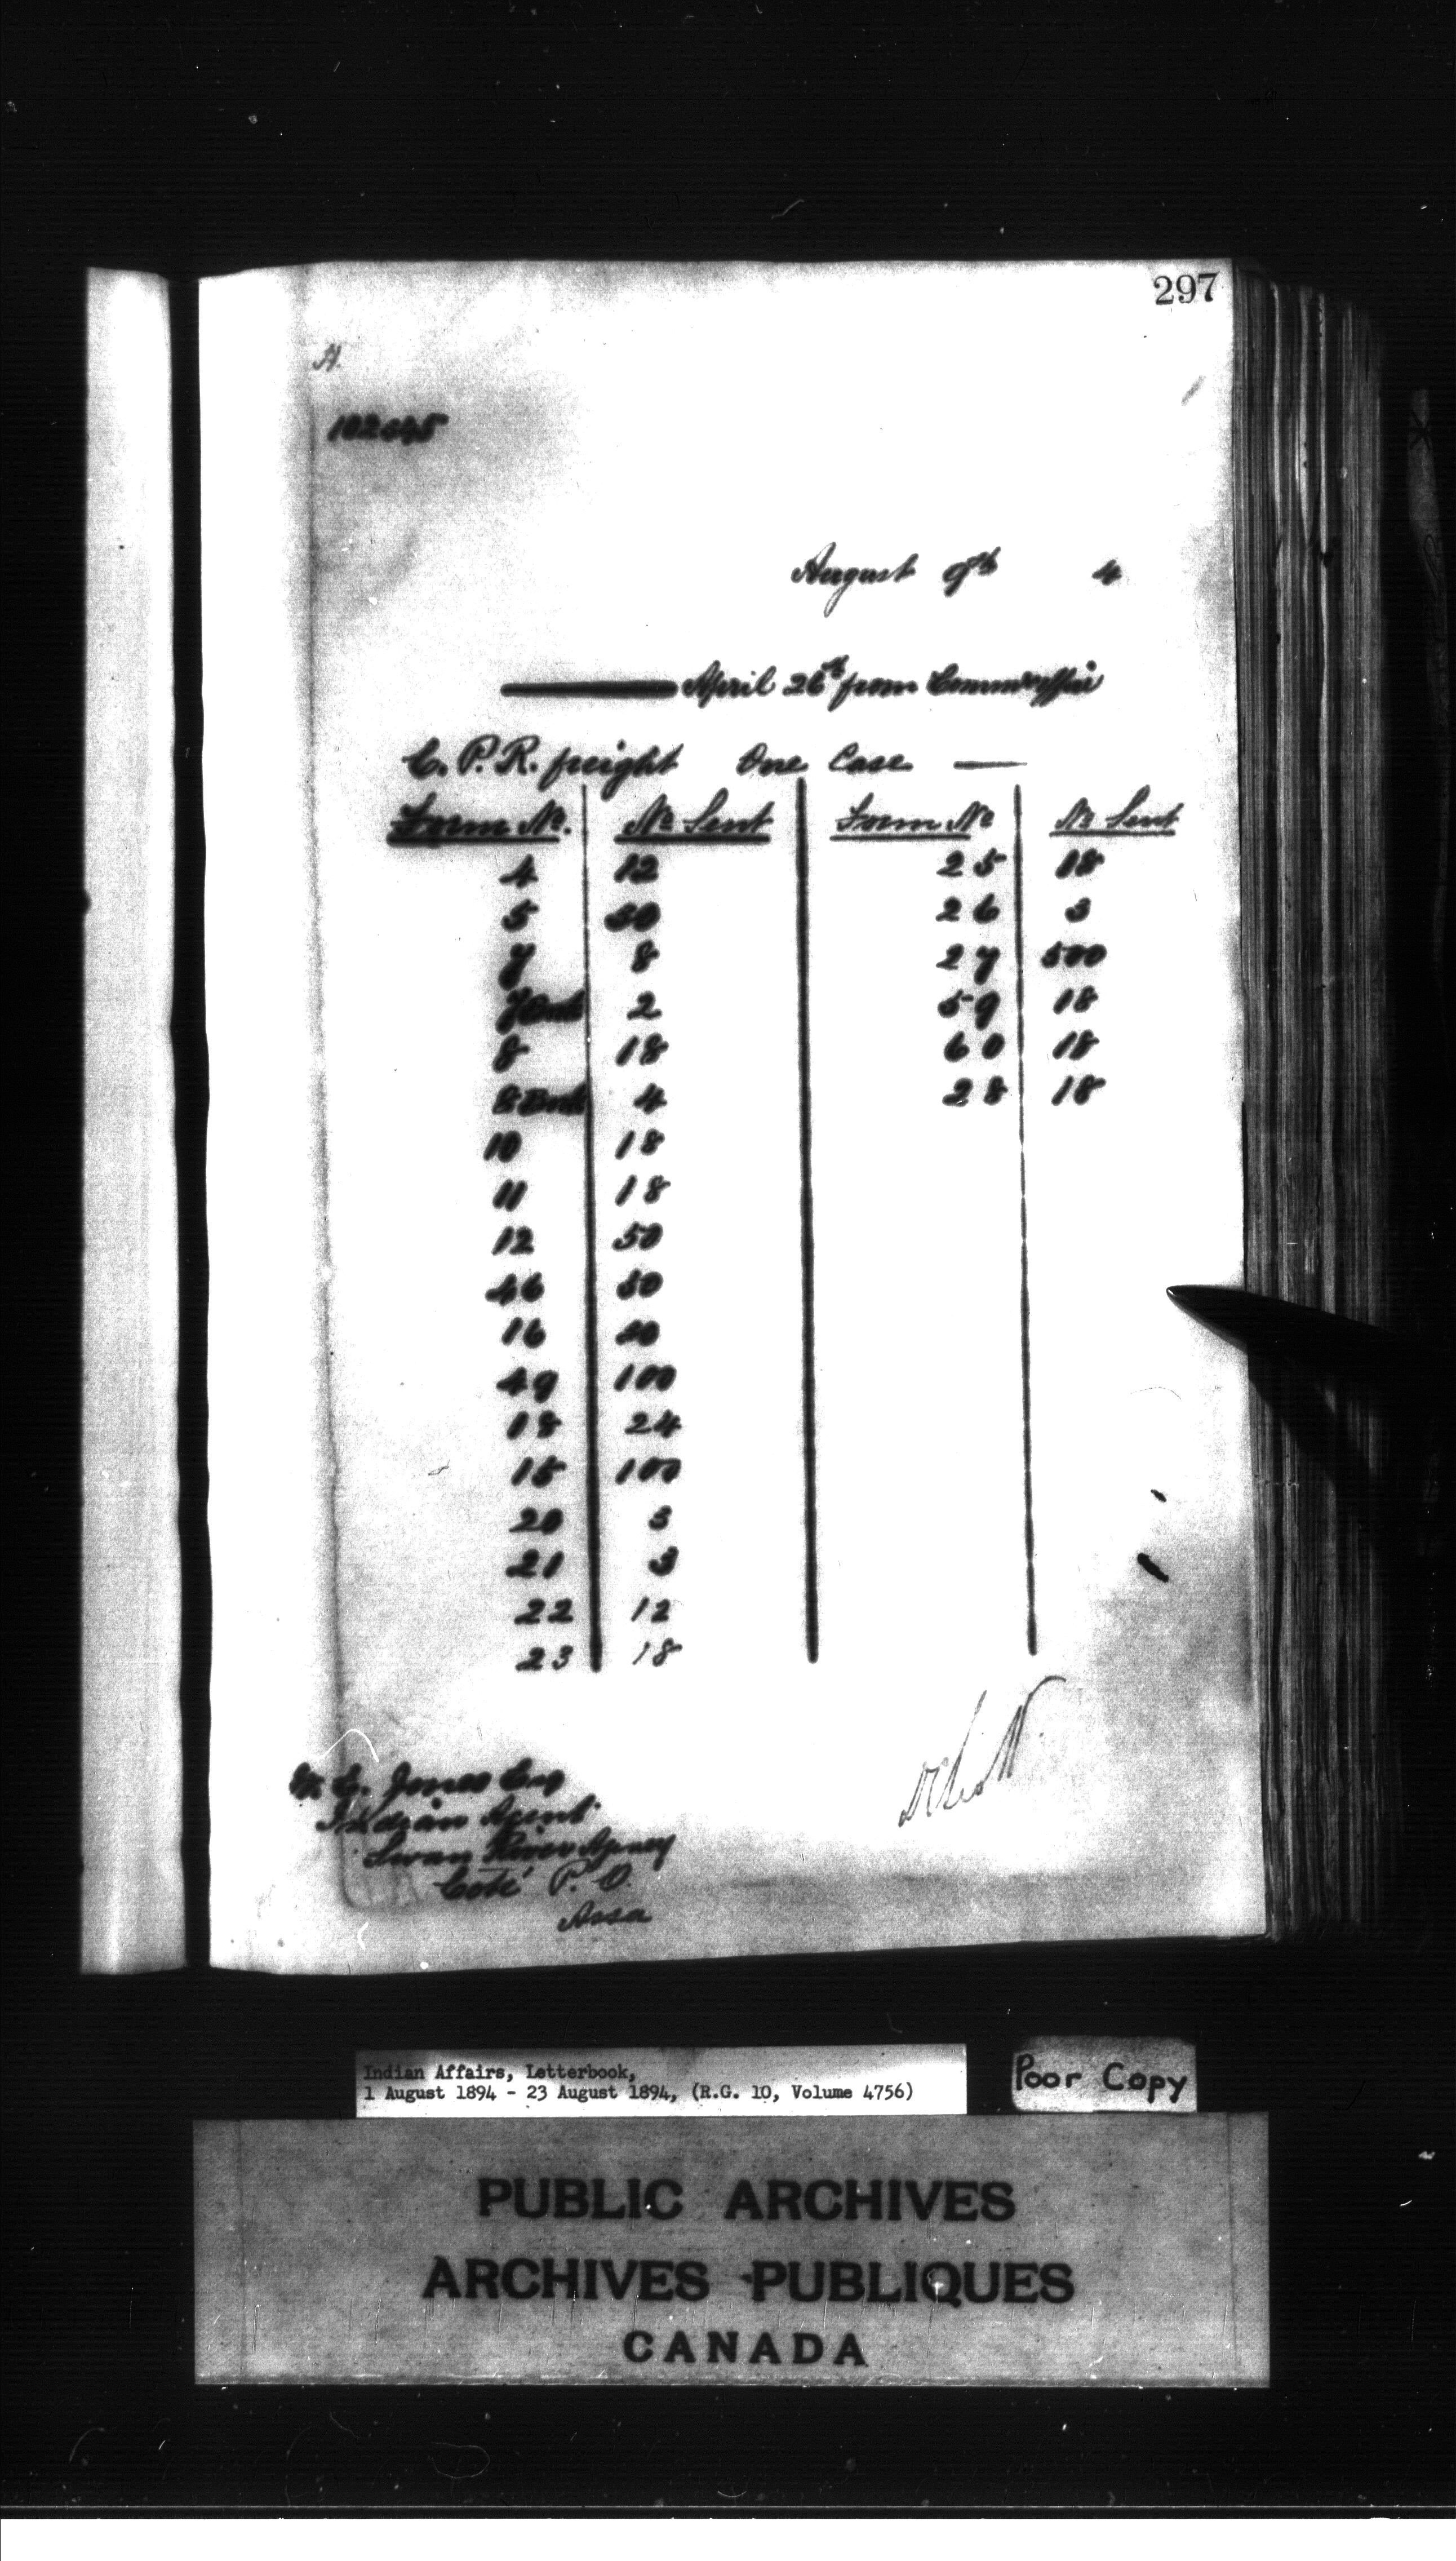 297
H.
102645
August 9th 4
April 26th from Commrs office
C. P. R. freight One Case —
Form No. No Sent Form No No Sent
4 12 25 18
5 30 26 3
7 8 27 500
7 Book 2 59 18
8 18 60 18
8 Book 4 28 18
10 18
11 18
12 50
46 50
16 20
49 100
18 24
15 100
20 3
21 3
22 12
23 18
W. E. Jones Esq
Indian Agent
Swan River Agency
Coté P. O.
Assa
Indian Affairs, Letterbook,
1 August 1894 - 23 August 1894, (R.G. 10, Volume 4756)
Poor Copy
PUBLIC ARCHIVES
ARCHIVES PUBLIQUES
CANADA